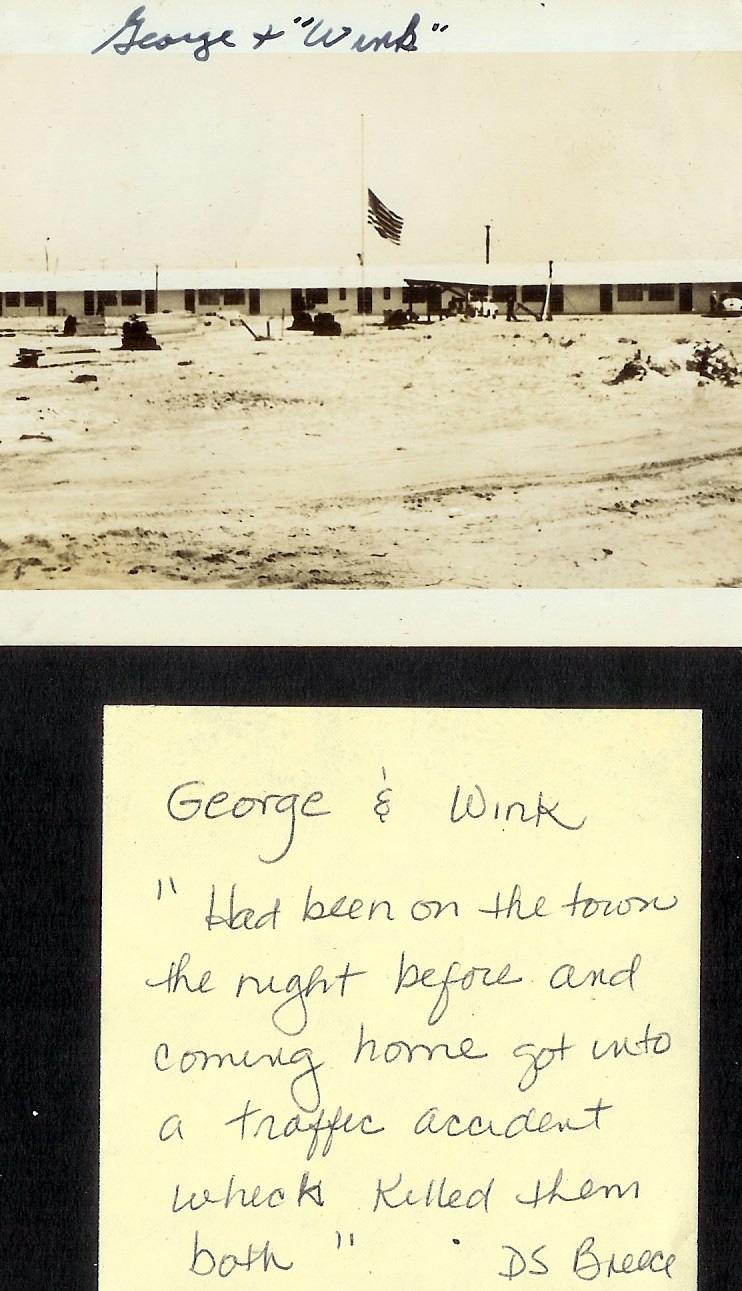 George + "Wink"
George & Wink
"Had been on the town
the night before and
coming home got into
a traffic accident
wheck killed them
both" DS Breece